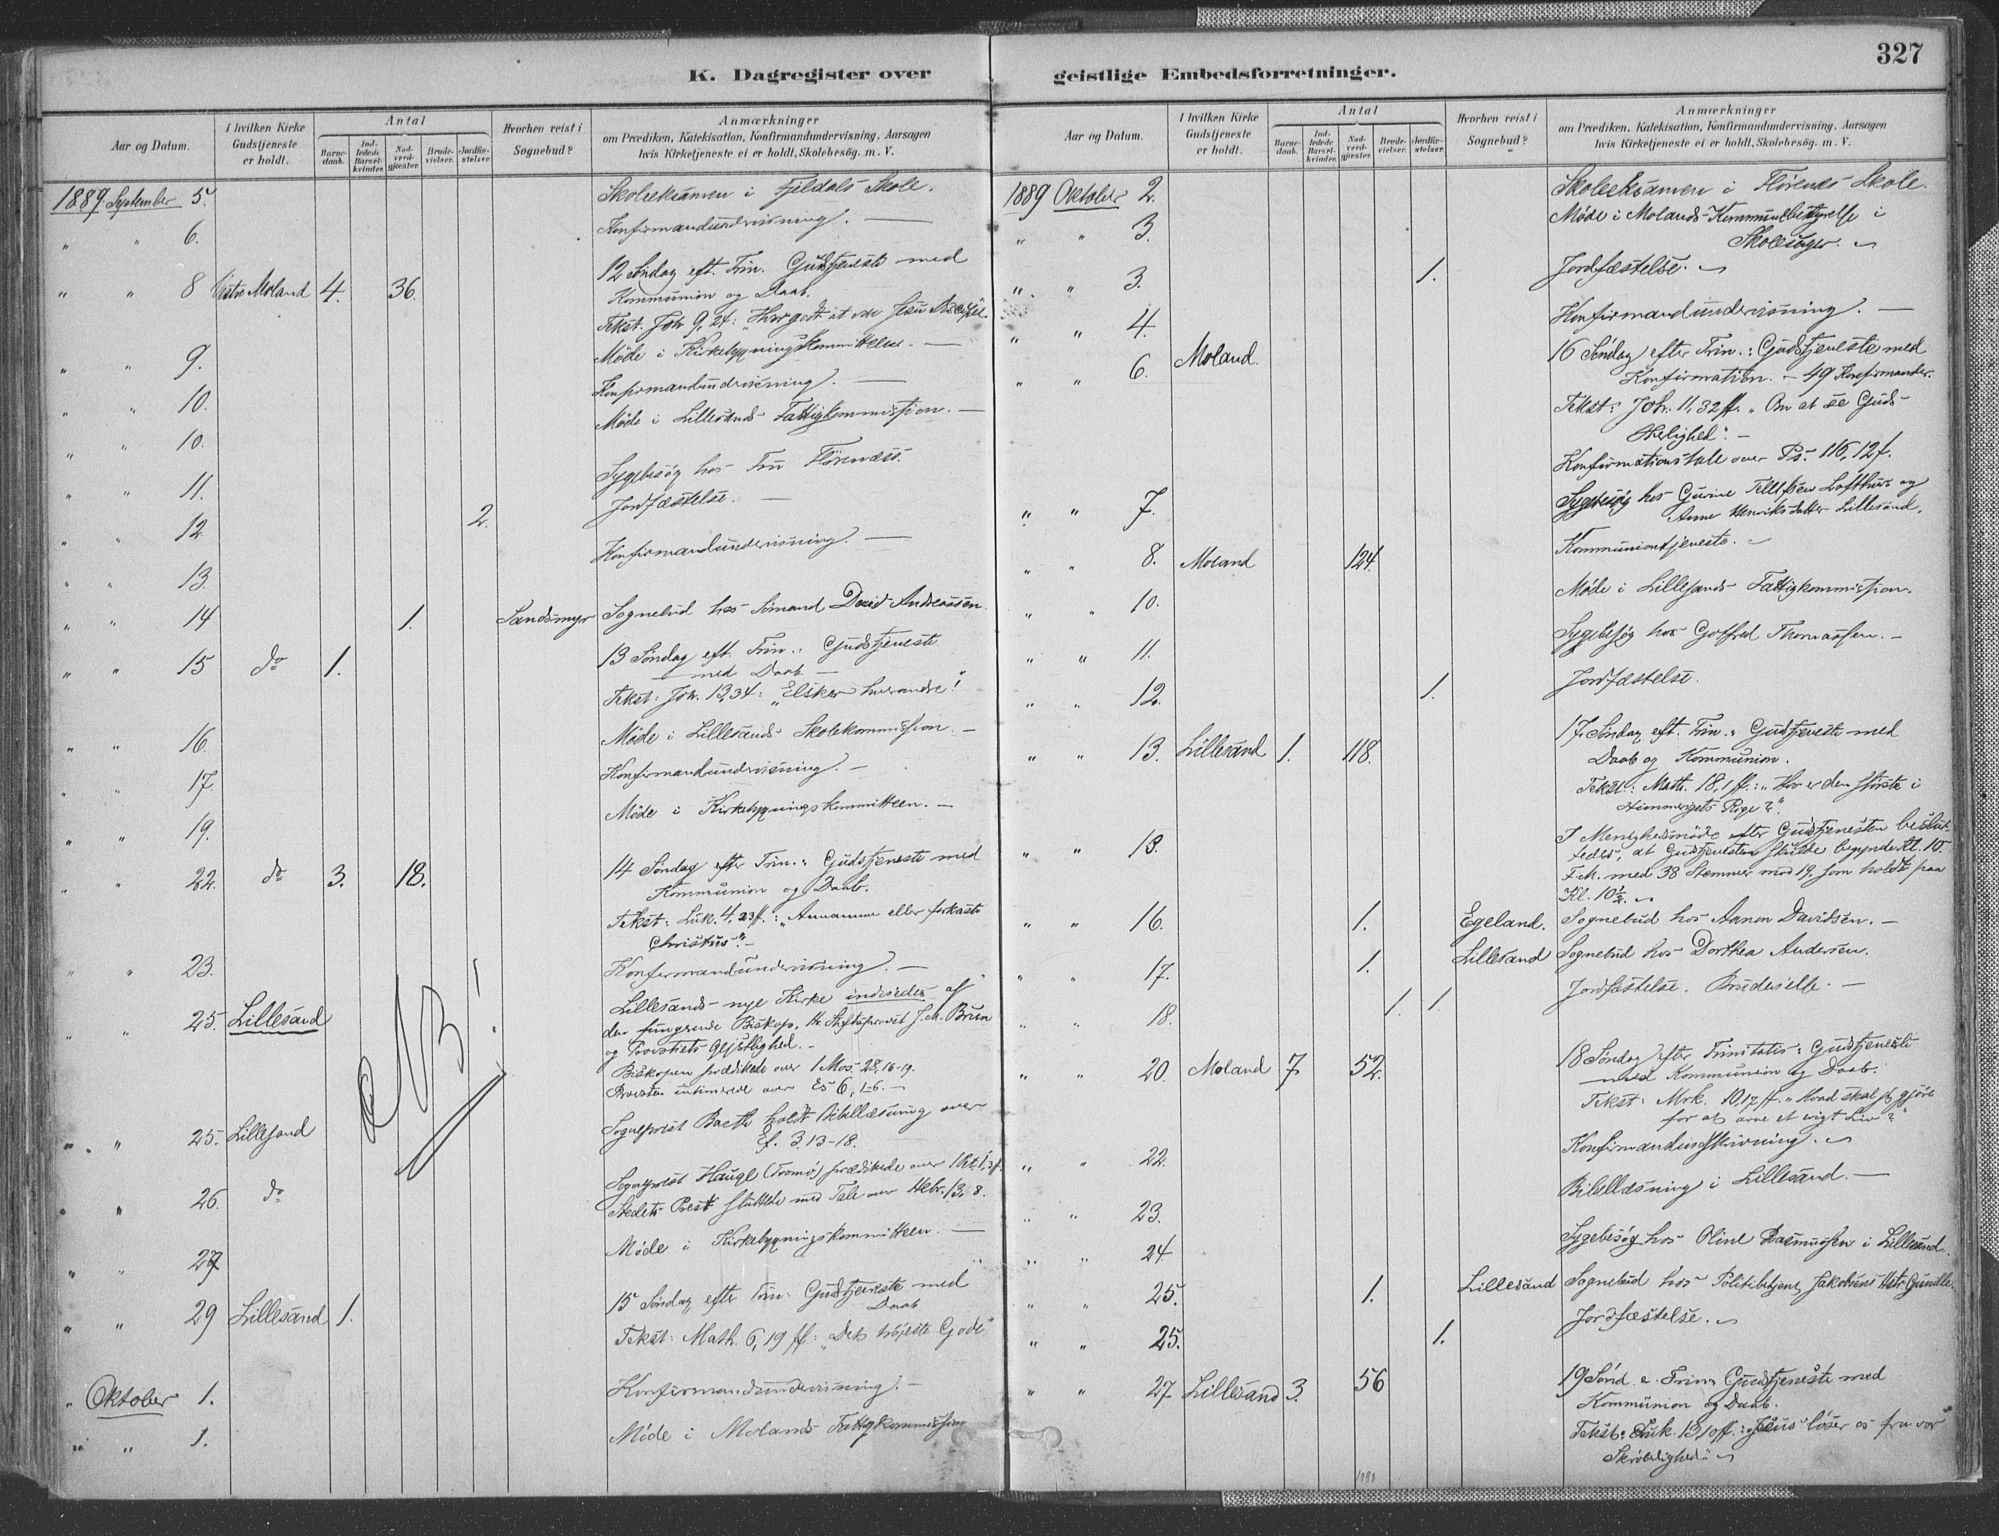 327
K. Dagregister over geistlige Embedsforretninger.
Aar og Datum. I hvilken Kirke Gudstjeneste er holdt. Antal Barnedaab. Indledede Barselkvinder. Nadverdgjester. Brudevielser. Jordfæstelser. Hvorhen reist i Sognebud? Anmærkninger
om Prædiken, Katekisation, Konfirmandundervisning, Aarsagen
hvis Kirketjeneste ei er holdt, Skolebesög. m. V.
1889 September 5. Skoleeksamen i Fjeldals Skole.
" " 6. Konfirmandundervisning. —
" " 8 Vestre Moland 4. 36. 12 Søndag eft. Trin. Gudstjeneste med
Kommunion og Daab.
Tekst: Joh. 9, 24:
" " 9. Møde i Kirkebygningskommitteen. —
" " 10. Konfirmandundervisning. —
" " 10. Møde i Lillesands Fattigkommission. —
" " 11. Sygebesøg hos Fru Flørenæss.
" " 12 2. Jordfæstelse. —
" " 13. Konfirmandundervisning. —
" " 14 1. Sandsmyr Sognebud hos Sømand David Andreassen.
" " 15 do 1. 13 Søndag eft. Trin.: Gudstjeneste
med Daab. —
Tekst: Joh. 13,34: "Elsker hverandre!"
" " 16. Møde i Lillesands Skolekommission. —
" " 17. Konfirmandundervisning. —
" " 19. Møde i Kirkebygningskommitteen. —
" " 22. do 3. 18. 14 Søndag efter Trin.: Gudstjeneste med
Kommunion og Daab.
Tekst: Luk. 4, 23ff.: "Annamme eller forkaste
Christus"? —
" " 23. Konfirmandundervisning. —
" " 25. Lillesand NB! Lillesands nye Kirke indviedes af
den fungerende Biskop, Hr Stiftsprovst J. M. Brun
og Provstiets Gejstlighed. —
Biskopen prædikede over 1 Mos. 28, 16-19.
Provsten intimerede over Es 6, 1-6. —
" " 25. Lillesand Sogneprest Barth holdt Bibellæsning over
Ef. 3. 13-18.
" " 26 do Sogneprest Hauge (Tromø) prædikede over
Stedets Prest sluttede med Tale over Hebr. 13, 8.
" " 27 Møde i Kirkebygningskommitteen. —
" " 29 Lillesand 1. 15 Søndag efter Trin: Gudstjeneste med
Daab
Tekst: Math. 6, 19 ff: "Det højeste Gode"
" Oktober 1. Konfirmandundervisning. —
" " 1. Møde i Molands Fattigkommission
Aar og Datum. I hvilken Kirke Gudstjeneste er holdt. Antal Barnedaab. Indledede Barselkvinder. Nadverdgjester. Brudevielser. Jordfæstelser. Hvorhen reist i Sognebud? Anmærkninger
om Prædiken, Katekisation, Konfirmandundervisning, Aarsagen
hvis Kirketjeneste ei er holdt, Skolebesög. m. V.
1889 Oktober 2. Skoleeksamen i Flørenes Skole.
" " 3. Møde i Molands Kommunebestyrelse i
Skolesager.
" " 3. 1. Jordfæstelse.
" " 4. Konfirmandundervisning. —
" " 6. Moland. 16 Søndag efter Trin.: Gudstjeneste med
Konfirmation. — 49 Konfirmander.
Tekst: Joh. 11, 32 ff. "Om at se Guds
Herlighed". —
Konfirmationstale over Ps. 116, 12 f.
" " 7. Sygebesøg hos Gurine Tellefsen Lofthus og
Anne Henriksdatter Lillesand.
" " 8. Moland 124. Kommuniontjeneste.
" " 10. Møde i Lillesands Fattigkommission.
" " 11. Sygebesøg hos Gotfred Thomassen. —
" " 12. 1. Jordfæstelse.
" " 13. Lillesand 1. 118. 17 Søndag eft. Trin. Gudstjeneste med
Daab og Kommunion.
Tekst: Math. 18, 1 ff.: "Hvo er den største i
Himmeriges Rige?"
" " 13. I Menighedsmøde efter Gudstjenesten beslut-
tedes, at Gudstjenesten skulde begynde Kl. 10
F. M. med 38 Stemmer mod 19, som holdt paa
Kl. 10½.
" " 16. 1. Egeland. Sognebud hos Aanon Davidsen. —
" " 17. 1. Lillesand Sognebud hos Dorthea Andersen.
" " 18. 1 1. Jordfæstelse. Brudevielse. —
" " 20. Moland 7 52. 18 Søndag efter Trinitatis: Gudstjeneste
med Kommunion og Daab.
Tekst: Mrk. 10 17 ff. "Hvad skal jeg gjøre
for at arve et evigt Liv?"
" " 22. Konfirmandindskrivning.
" " 23. Bibellæsning i Lillesand. —
" " 24 Sygebesøg hos Oline Rasmussen i Lillesand.
" " 25. 1. Lillesand Sognebud hos Politibetjent Jakobsens Hstr. Gunille.
" " 25. 1. Jordfæstelse.
" " 27 Lillesand 3. 56 19 Sønd. e. Trin: Gudstjeneste med
Kommunion og Daab.
Tekst: Luk. 13, 10ff.: "Jesus løser os fra vor
Skrøbelighed"